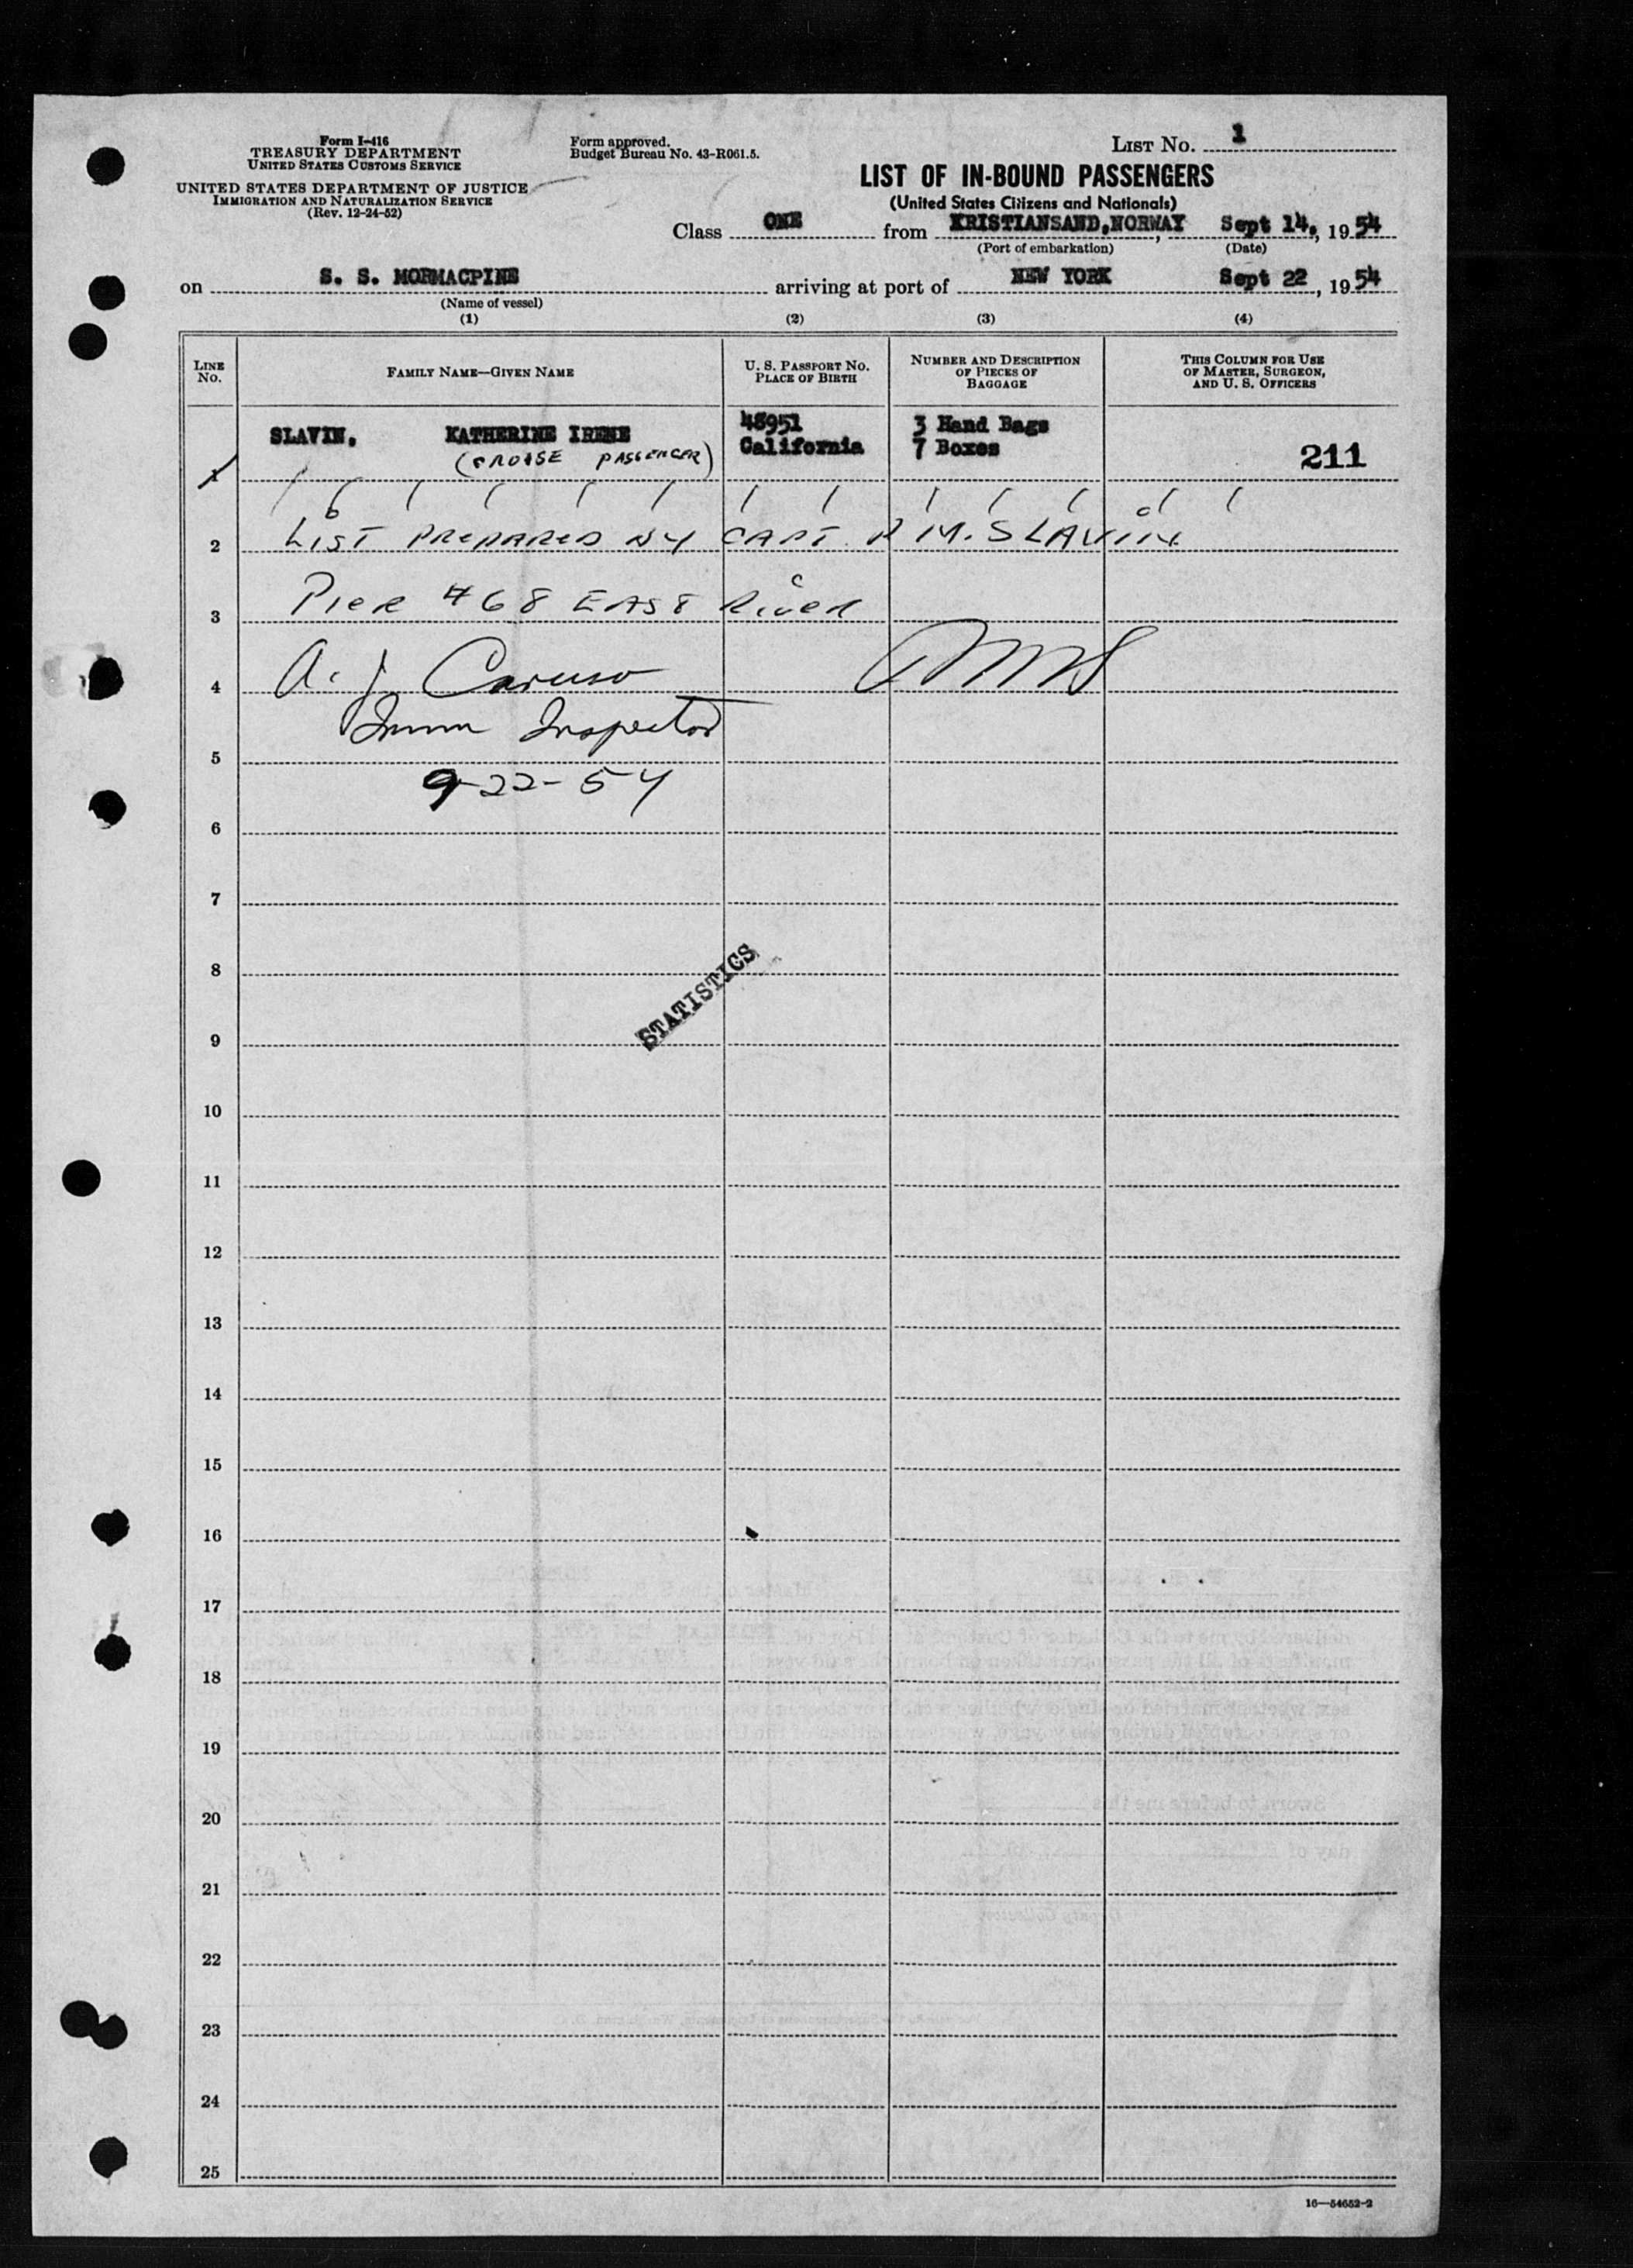 Form I-416
TREASURY DEPARTMENT
UNITED STATES CUSTOMS SERVICE
UNITED STATES DEPARTMENT OF JUSTICE
IMMIGRATION AND NATURALIZATION SERVICE
(Rev. 12-24-52)
Form approved.
Budget Bureau No. 43-R061.5.
LIST NO. 1
LIST OF IN-BOUND PASSENGERS
(United States Citizens and Nationals)
Class ONE from KRISTIANSAND, NORWAY, Sept 14, 1954
(Port of embarkation) (Date)
on S. S. MORMACPINE arriving at port of NEW YORK Sept 22, 1954
(Name of vessel)
(1) (2) (3) (4)
LINE NO.
FAMILY NAME—GIVEN NAME
U. S. PASSPORT NO.
PLACE OF BIRTH
NUMBER AND DESCRIPTION
OF PIECES OF
BAGGAGE
THIS COLUMN FOR USE
OF MASTER, SURGEON,
AND U. S. OFFICERS
1 SLAVIN, KATHERINE IRENE
(CRUISE PASSENGER)
48951
California
3 Hand Bags
7 Boxes
211
2 LIST PREPARED BY CAPT. R M. SLAVIN
3 PIER #68 EAST RIVER
4 A. J. Caruso
Imm Inspector
5
9-22-54
6
7
8
STATISTICS
9
10
11
12
13
14
15
16
17
18
19
20
21
22
23
24
25
16—54652-2